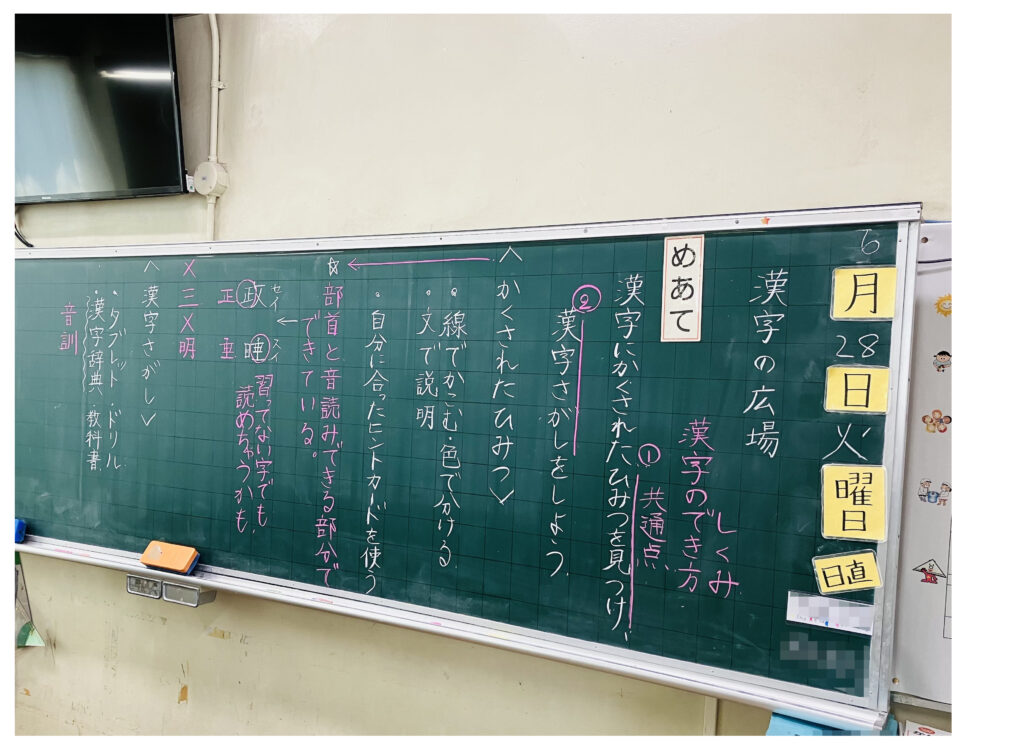 6月28日火曜日
日直
漢字の広場
漢字のでき方
しくみ
めあて
漢字にかくされたひみつを見つけ、
①共通点
②
漢字さがしをしよう。
〈かくされたひみつ〉
・線でかこむ・色で分ける
・文で説明
・自分に合ったヒントカードを使う
☆
部首と音読みできる部分で
できている。
←
セイ
政
正
スイ
睡
垂
習ってない字でも
読めちゃうかも
×三×明
〈漢字さがし〉
・タブレット・ドリル
・漢字辞典・教科書
音訓